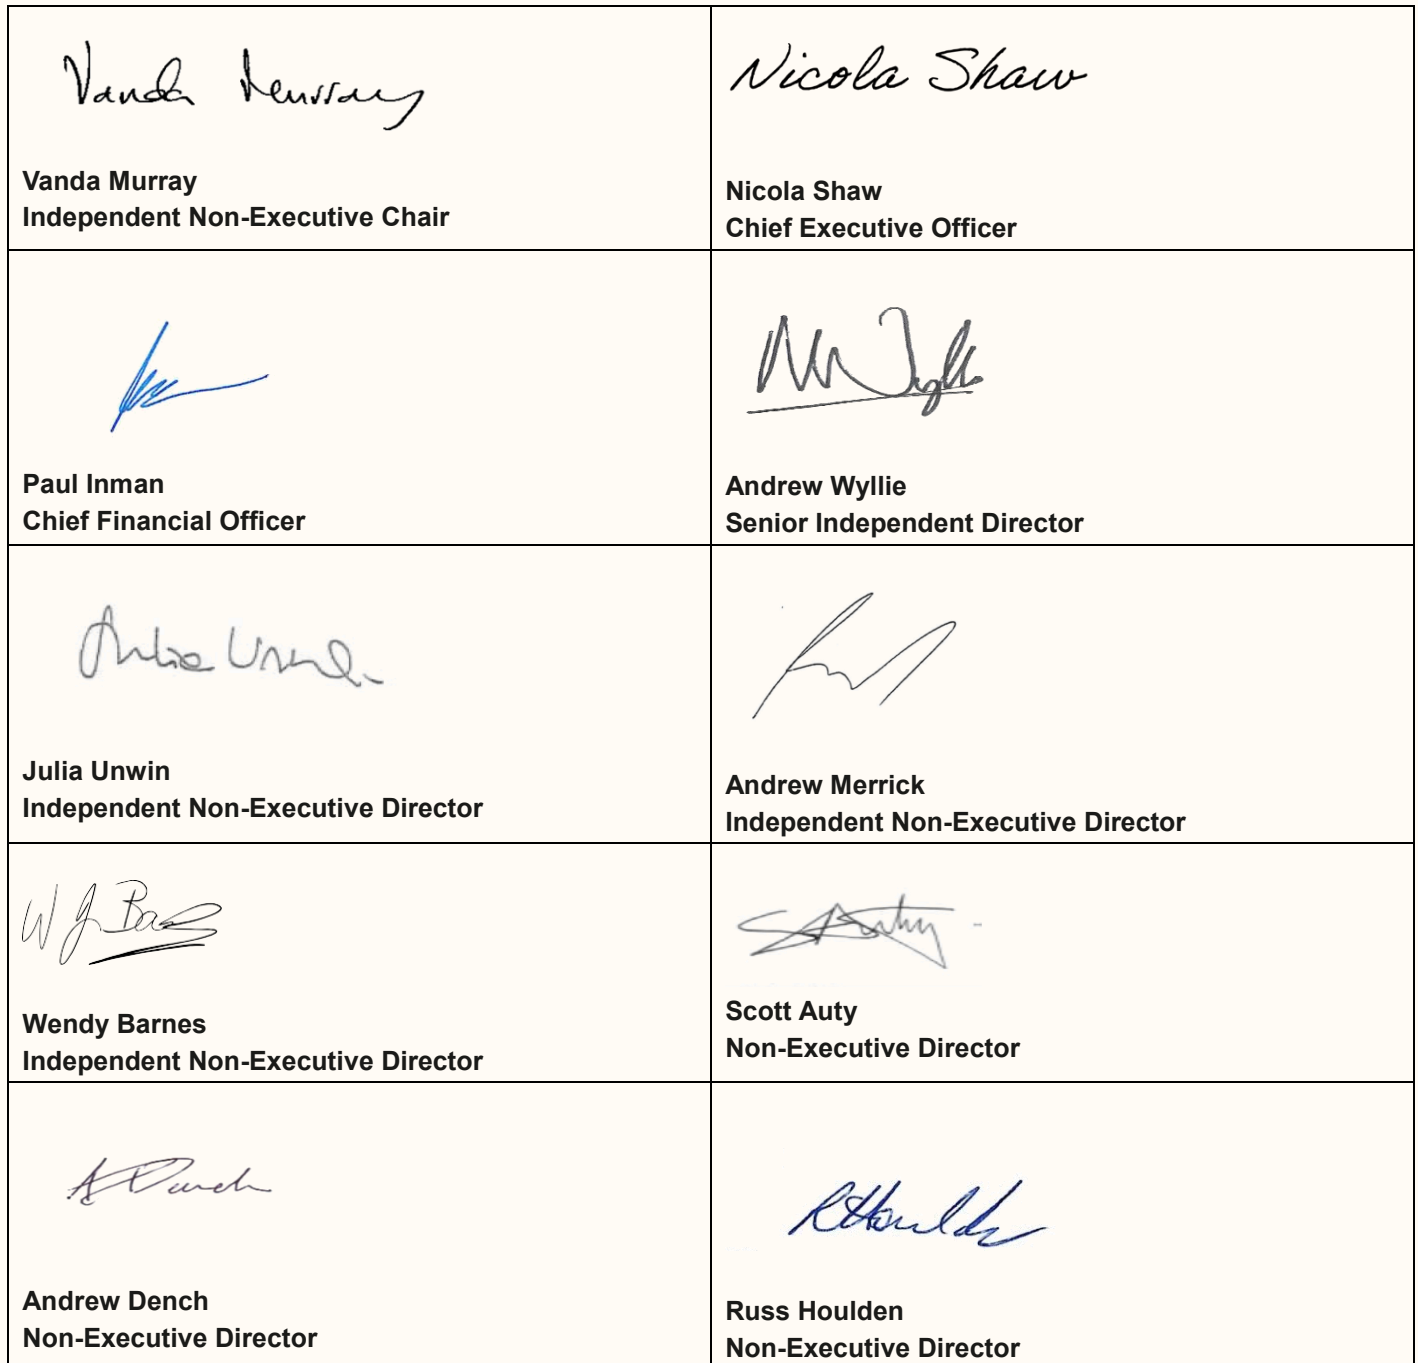 Vanda Murray
Nicola Shaw
Vanda Murray
Independent Non-Executive Chair
Nicola Shaw
Chief Executive Officer
Paul Inman
Chief Financial Officer
Andrew Wyllie
Senior Independent Director
Julia Unwin
Julia Unwin
Independent Non-Executive Director
Andrew Merrick
Independent Non-Executive Director
Wendy Barnes
Independent Non-Executive Director
Scott Auty
Non-Executive Director
Andrew Dench
Non-Executive Director
Russ Houlden
Non-Executive Director